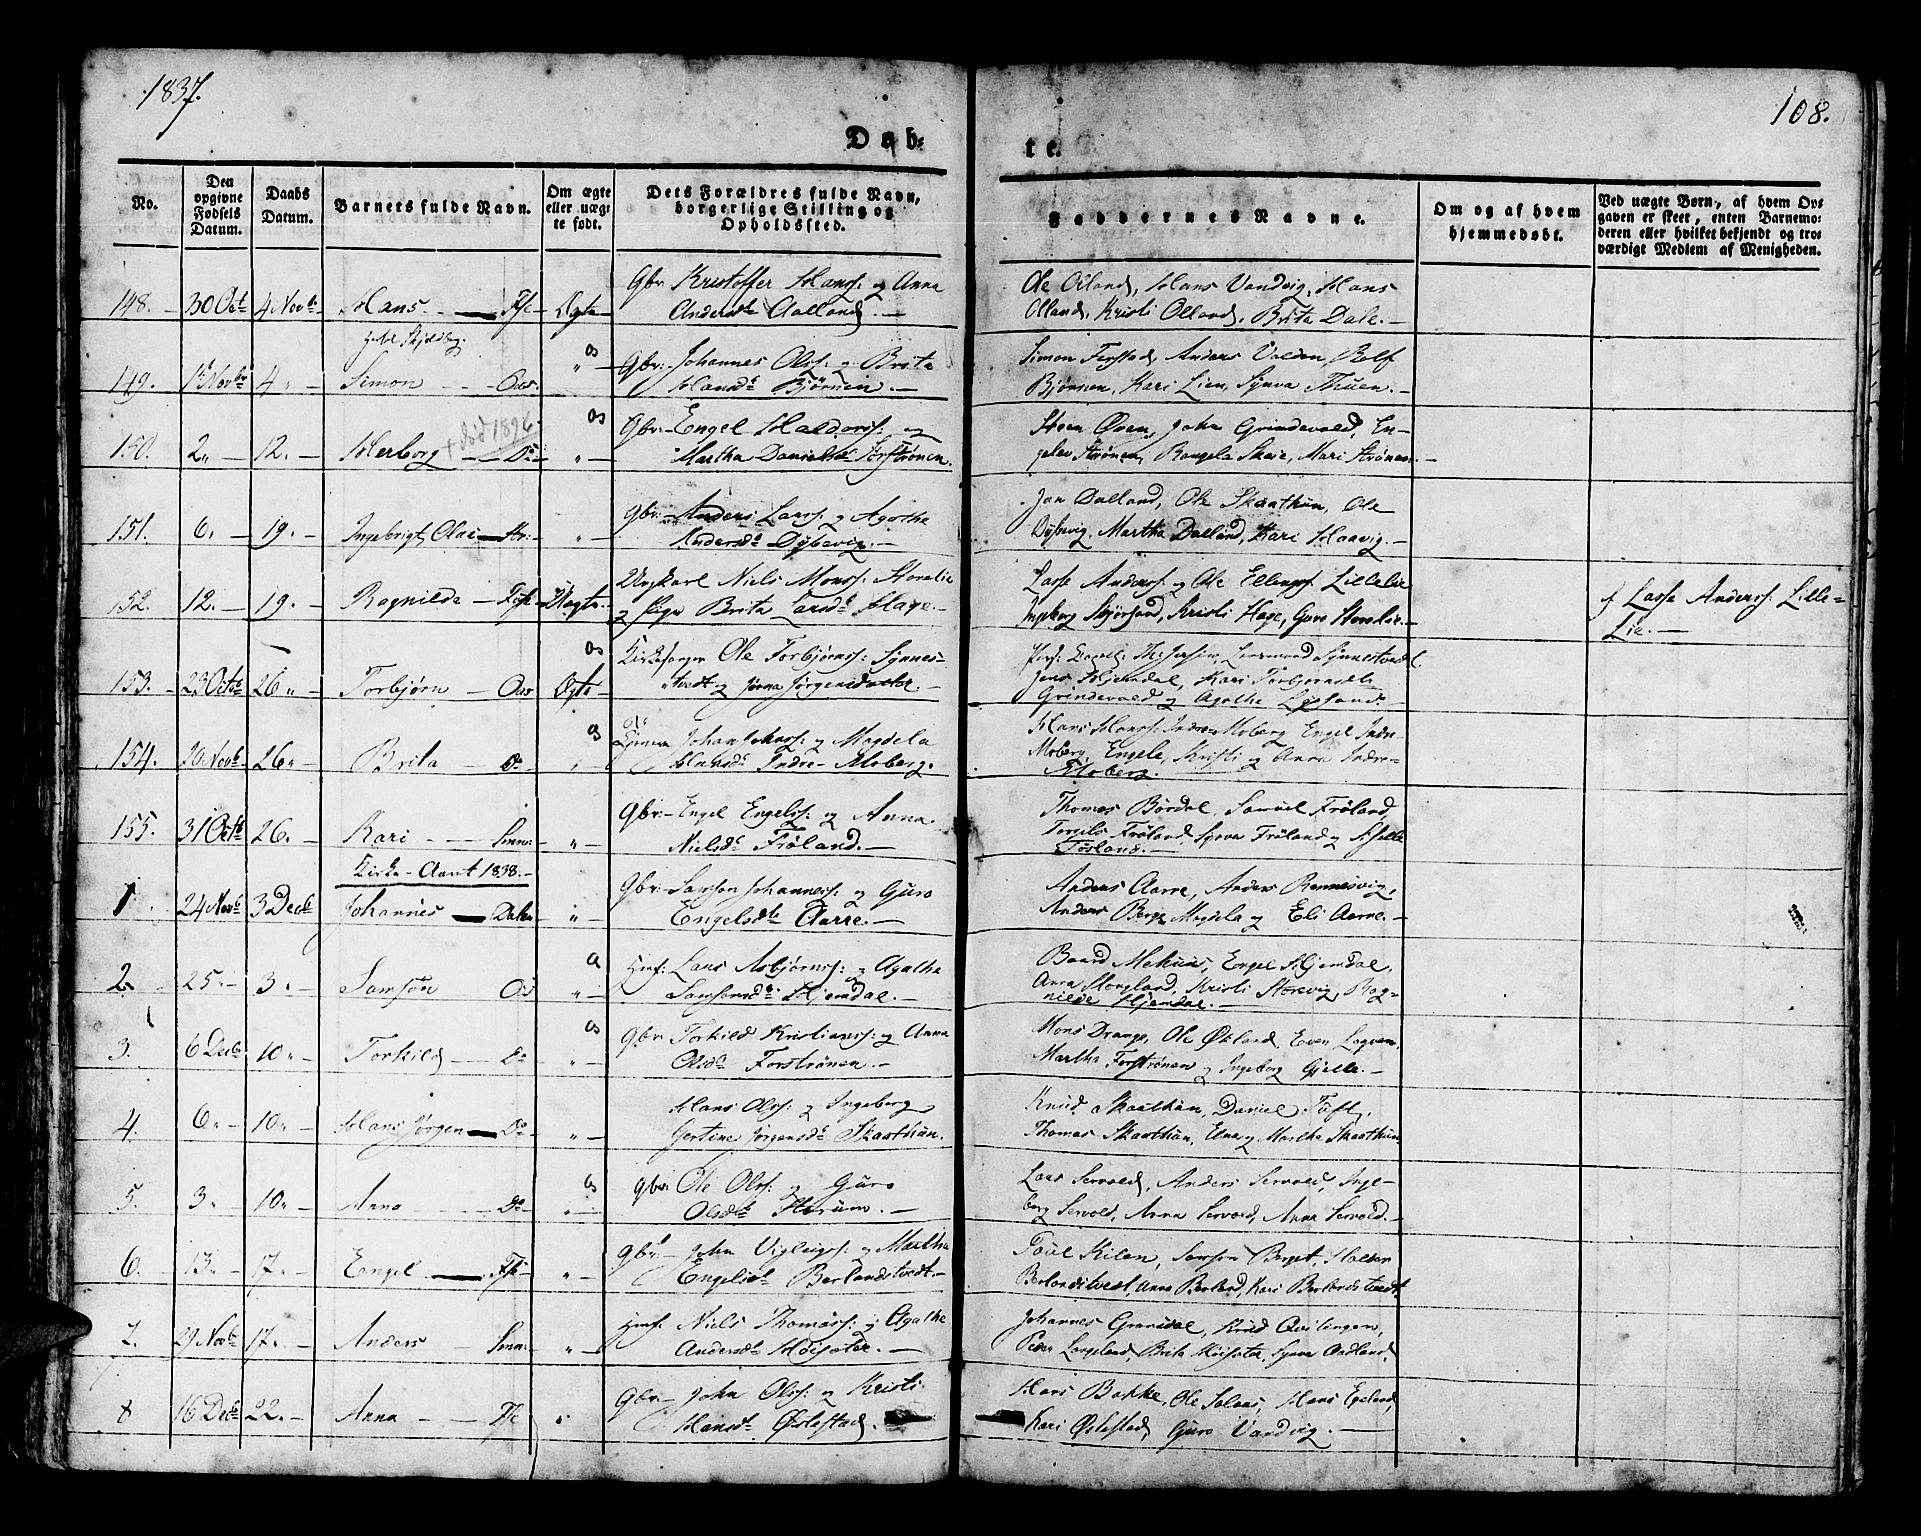 1837.
108.
Døb-
te.
No.
Den opgivne Fødsels Datum.
Daabs Datum.
Barnets fulde Navn.
Om ægte eller uægte født.
Dets Forældres fulde Navn, borgerlige Stilling og Opholdssted.
Faddernes Navne.
Om og af hvem hjemmedøbt.
Ved uægte Børn, af hvem Opgaven er skeet, enten Barnemoderen eller hvilket bekjendt og troværdigt Medlem af Menigheden.
148. 30 Oct 4 Novb. Hans Ægte Gbr. Kristoffer Hanss: og Anna
Andersd. Aalland. Ole Ølland, Hans Vandvig, Hans
Ølland, Kristi Ølland, Brita Dale.
149. 4 Simon Os Gbr. Johannes Olss: og Brita
Hansd. Bjørnen. Simon Ferstad, Anders Valden, Rolf
Bjørnen, Kari Lien, Synva Thuen.
150. 2 12. Herborg død 1896 Do Os Gbr. Engel Haldorss: og
Martha Danielsd. Forstrønen. Steen Øvren, John Grindevold, En-
gelev Strønen, Rangela Skeie, Mari Strønen.
151. 6. 19. Ingebrigt Olai Str: Gbr. Anders Larss: og Agathe
Andersd. Dybevig. Jon Dalland, Ole Skaathun, Ole
Dybevig, Martha Dalland, Kari Haavig.
152. 12. 19. Ragnilda Uægte Ungkarl Niels Monss: Storelie
og Pige Brita Larsd. Hage. Lasse Anderss: og Ole Ellingss: Lillelie
Ingeborg Skjørsand, Kristi Hage, Guro Storelie. af Lasse Anderss: Lille-
Lie.
153. 23 Octb 26 Torbjørn Os Ægte Kirkesanger Ole Torbjørnss: Synnes-
tvedt og Jørna Jørgensdatter.
Jens Hjemdal, Kari Torbjørnsdtr
Grindevold og Agathe Lysland.
154. 20 Novb 26 Brita Do Os Johan Johnss: og Magdela
Hansd. Indre-Moberg. Hans Hanss: Indre Moberg, Engel Indre
Moberg, Engele, Kristi og Anna Indre-
Moberg.
155. 31 Octb 26. Kari Gbr: Engel Engelss: og Anna
Nielsd. Frøland. Thomas Børdal, Samuel Frøland,
Torgils Frøland, Synva Frøland og Sissele
Frøland.
Kirke-Aaret 1838.
1 24 Novb 3 Decb Johannes Gbr. Samson Johanness: og Guro
Engelsd. Aarre. Anders Aarre, Anders Rennesvig,
Anders Berge, Magdela og Eli Aarre.
2. 25 3 Samson Os Hmf: Lars Asbjørnss: og Agatha
Samsonsd. Hjemdal. Baard Mehuus, Engel Hjemdal,
Anna Hougland, Kristi Storevig, Rag-
nilde Hjemdal.
3. 6 Decb 10 Torkild Do Os Gbr: Torkild Kristianss: og Anna
Olsd. Forstrønen. Mons Drange, Ole Økland, Even Legven,
Martha Forstrønen og Ingeborg Gjelle.
4. 6 10 Hans Jørgen Do Hans Olss: og Ingeborg
Gertine Jørgensd. Skaathun. Knud Skaathun, Daniel Toft,
Thomas Skaathun, Elna og Martha Skaathun
5. 3 10 Anna Do Os Gbr: Ole Olss: og Guro
Olsd. Haruum. Lars Servold, Anders Servold, Inge-
borg Servold, Anna Servold, Anna Servold.
6. 13 17 Engel Gbr. John Vigleigss: og Martha
Engelsd. Berlandstvedt. Poul Kilen, Samson Berget, Haldor
Berlandstvedt, Anna Berland, Kari Berlandstvedt
7. 29 Novb 17. Anders Hmf: Niels Thomass: og Agathe
Andersd. Hoisæter. Johannes Granedal, Knud Qvilingen,
Peder Longeland, Brita Hoisæter, Synva Aadland.
8 16 Decb 22. Anna Gbr. John Olss: og Kristi
Hansd. Østestad. Hans Bakke, Ole Solaas, Hans Egeland,
Kari Østestad, Guro Vandvig.